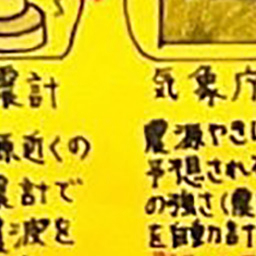 震計
源近くの
震計で
波を
気象庁
震源やき
予想され
の強さ(震
を自動計